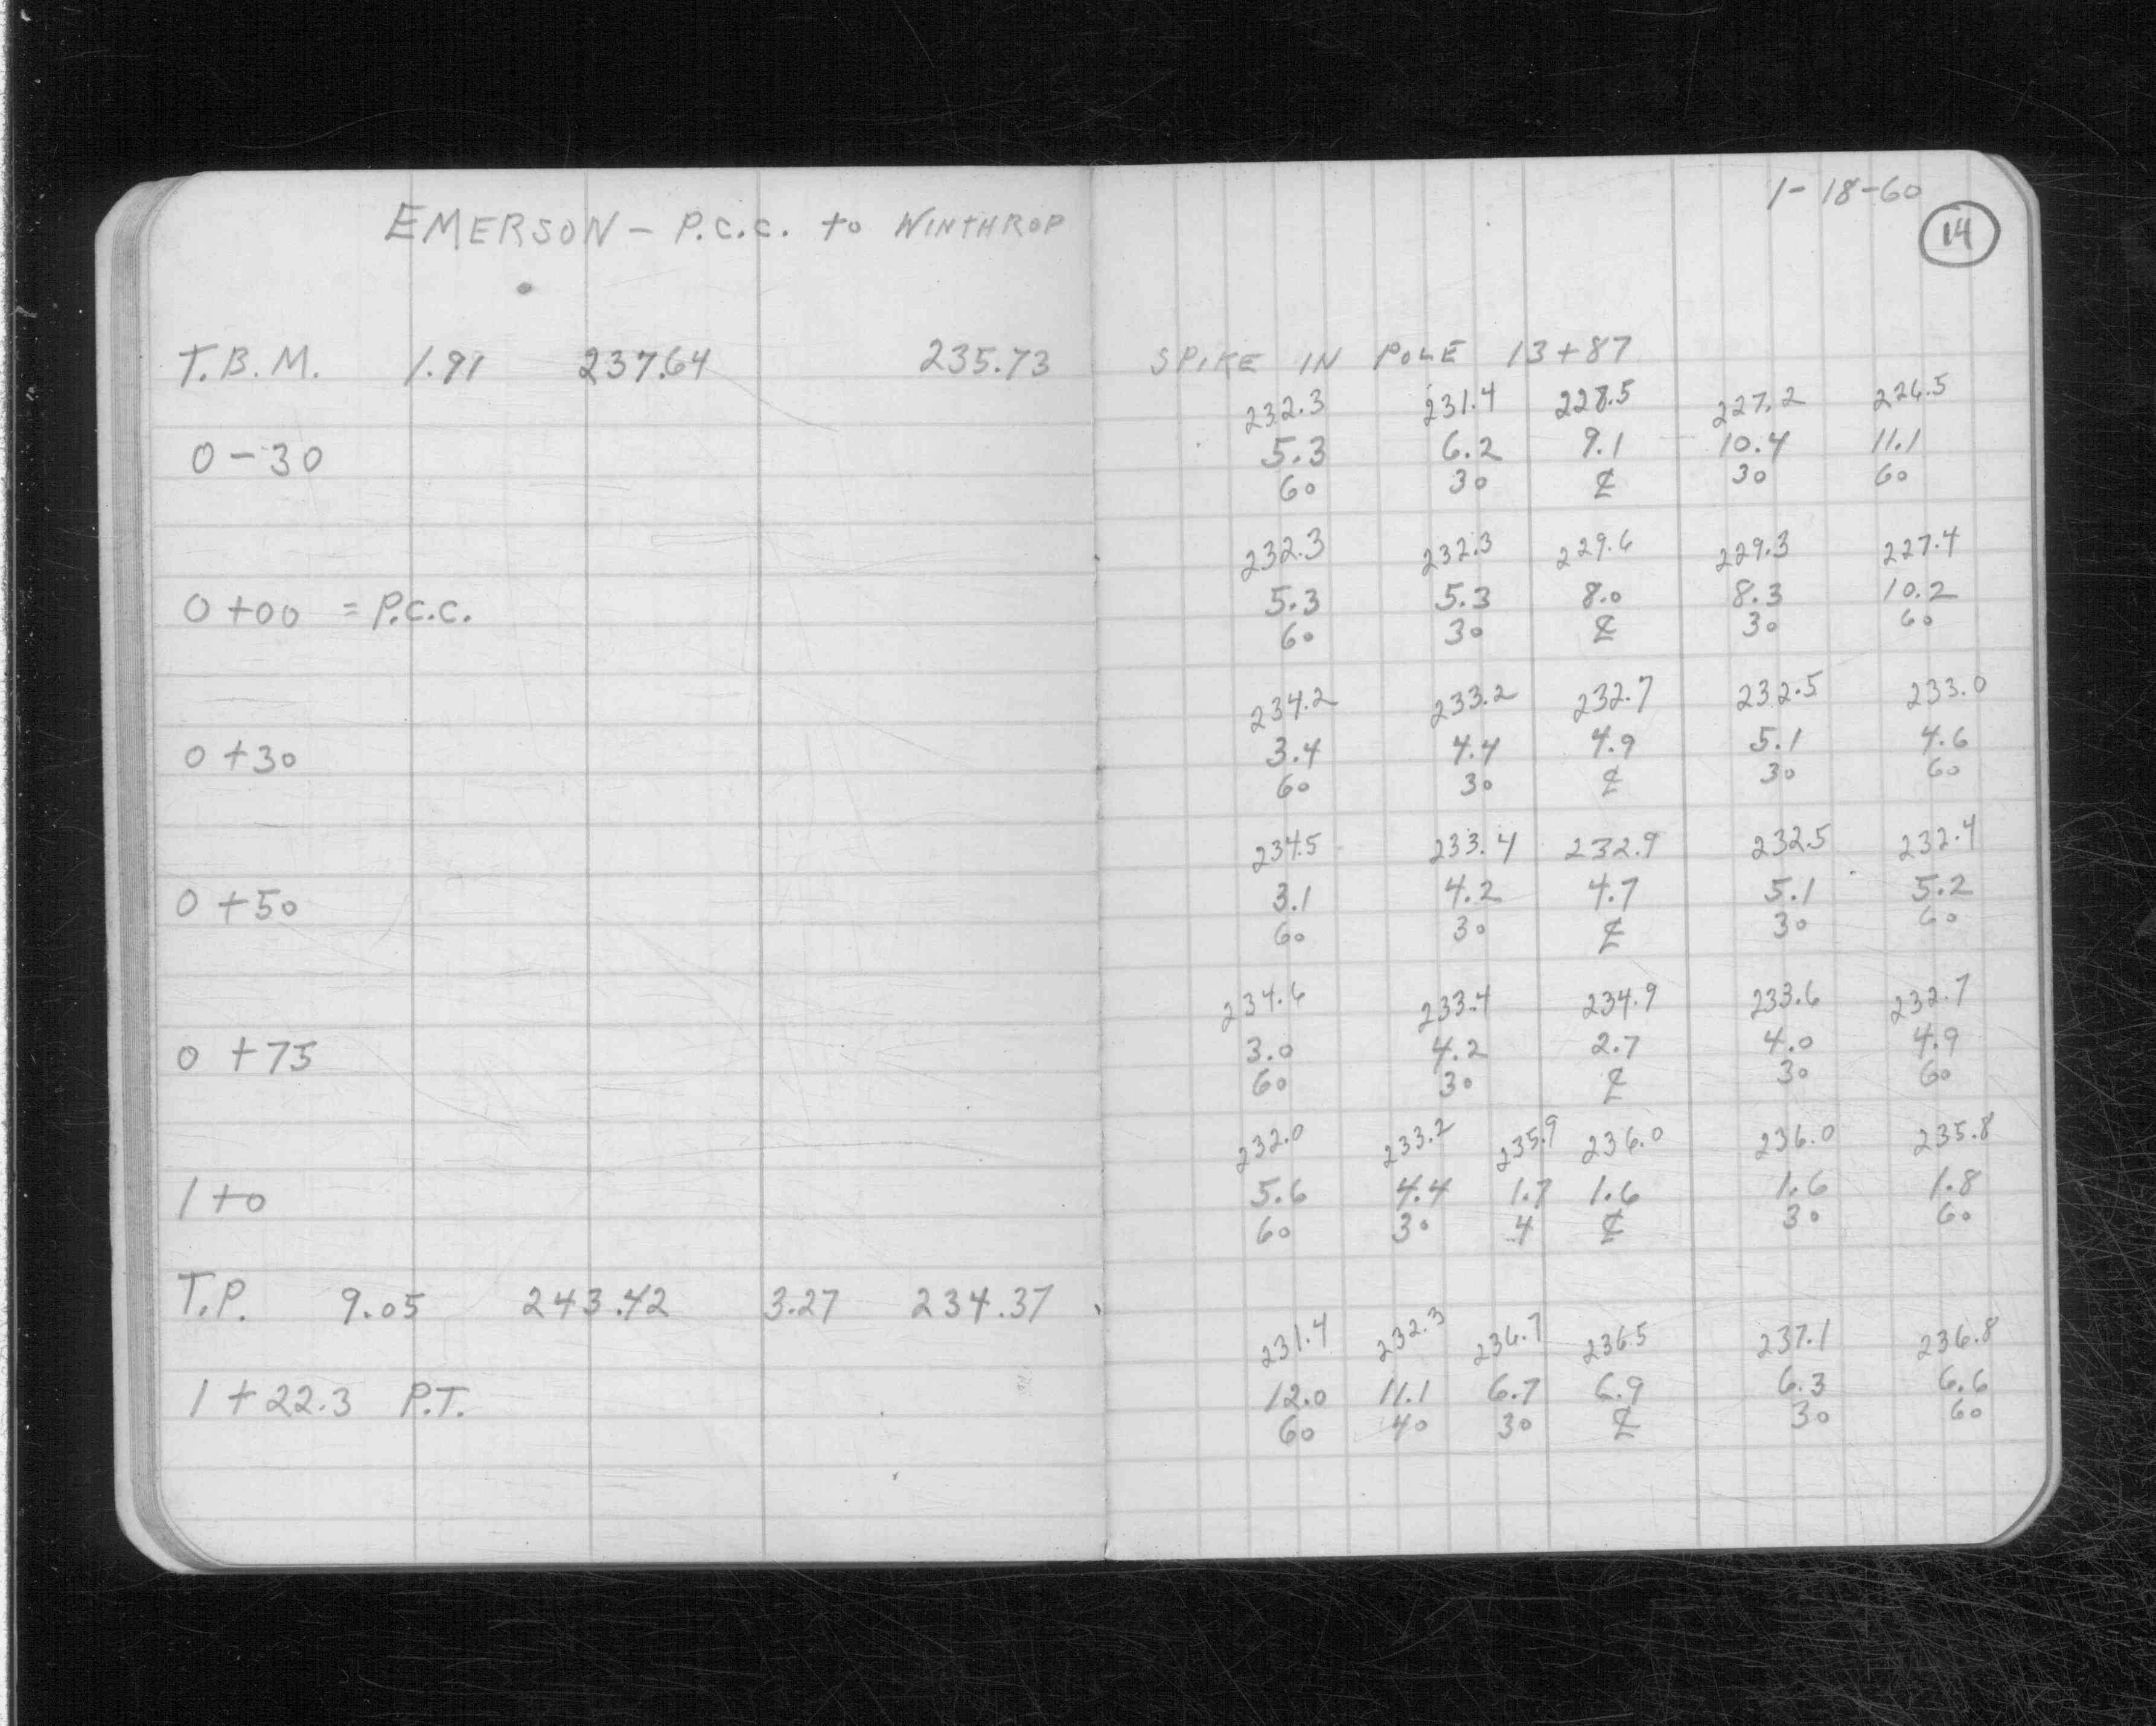 1-18-60
14
EMERSON - P.C.C. to WINTHROP
T.B.M. 1.91 237.64 235.73 SPIKE IN POLE 13+87
232.3 231.4 228.5 227.2 226.5
0-30 5.3 6.2 9.1 10.4 11.1
60 30 ℄ 30 60
232.3 232.3 229.6 229.3 227.4
0+00 = P.C.C. 5.3 5.3 8.0 8.3 10.2
60 30 ℄ 30 60
234.2 233.2 232.7 232.5 233.0
0+30 3.4 4.4 4.9 5.1 4.6
60 30 ℄ 30 60
234.5 233.4 232.9 232.5 232.4
0+50 3.1 4.2 4.7 5.1 5.2
60 30 ℄ 30 60
234.6 233.4 234.9 233.6 232.7
0+75 3.0 4.2 2.7 4.0 4.9
60 30 ℄ 30 60
232.0 233.2 235.9 236.0 236.0 235.8
1+0 5.6 4.4 1.7 1.6 1.6 1.8
60 30 4 ℄ 30 60
T.P. 9.05 243.42 3.27 234.37
231.4 232.3 236.7 236.5 237.1 236.8
1+22.3 P.T. 12.0 11.1 6.7 6.9 6.3 6.6
60 40 30 ℄ 30 60